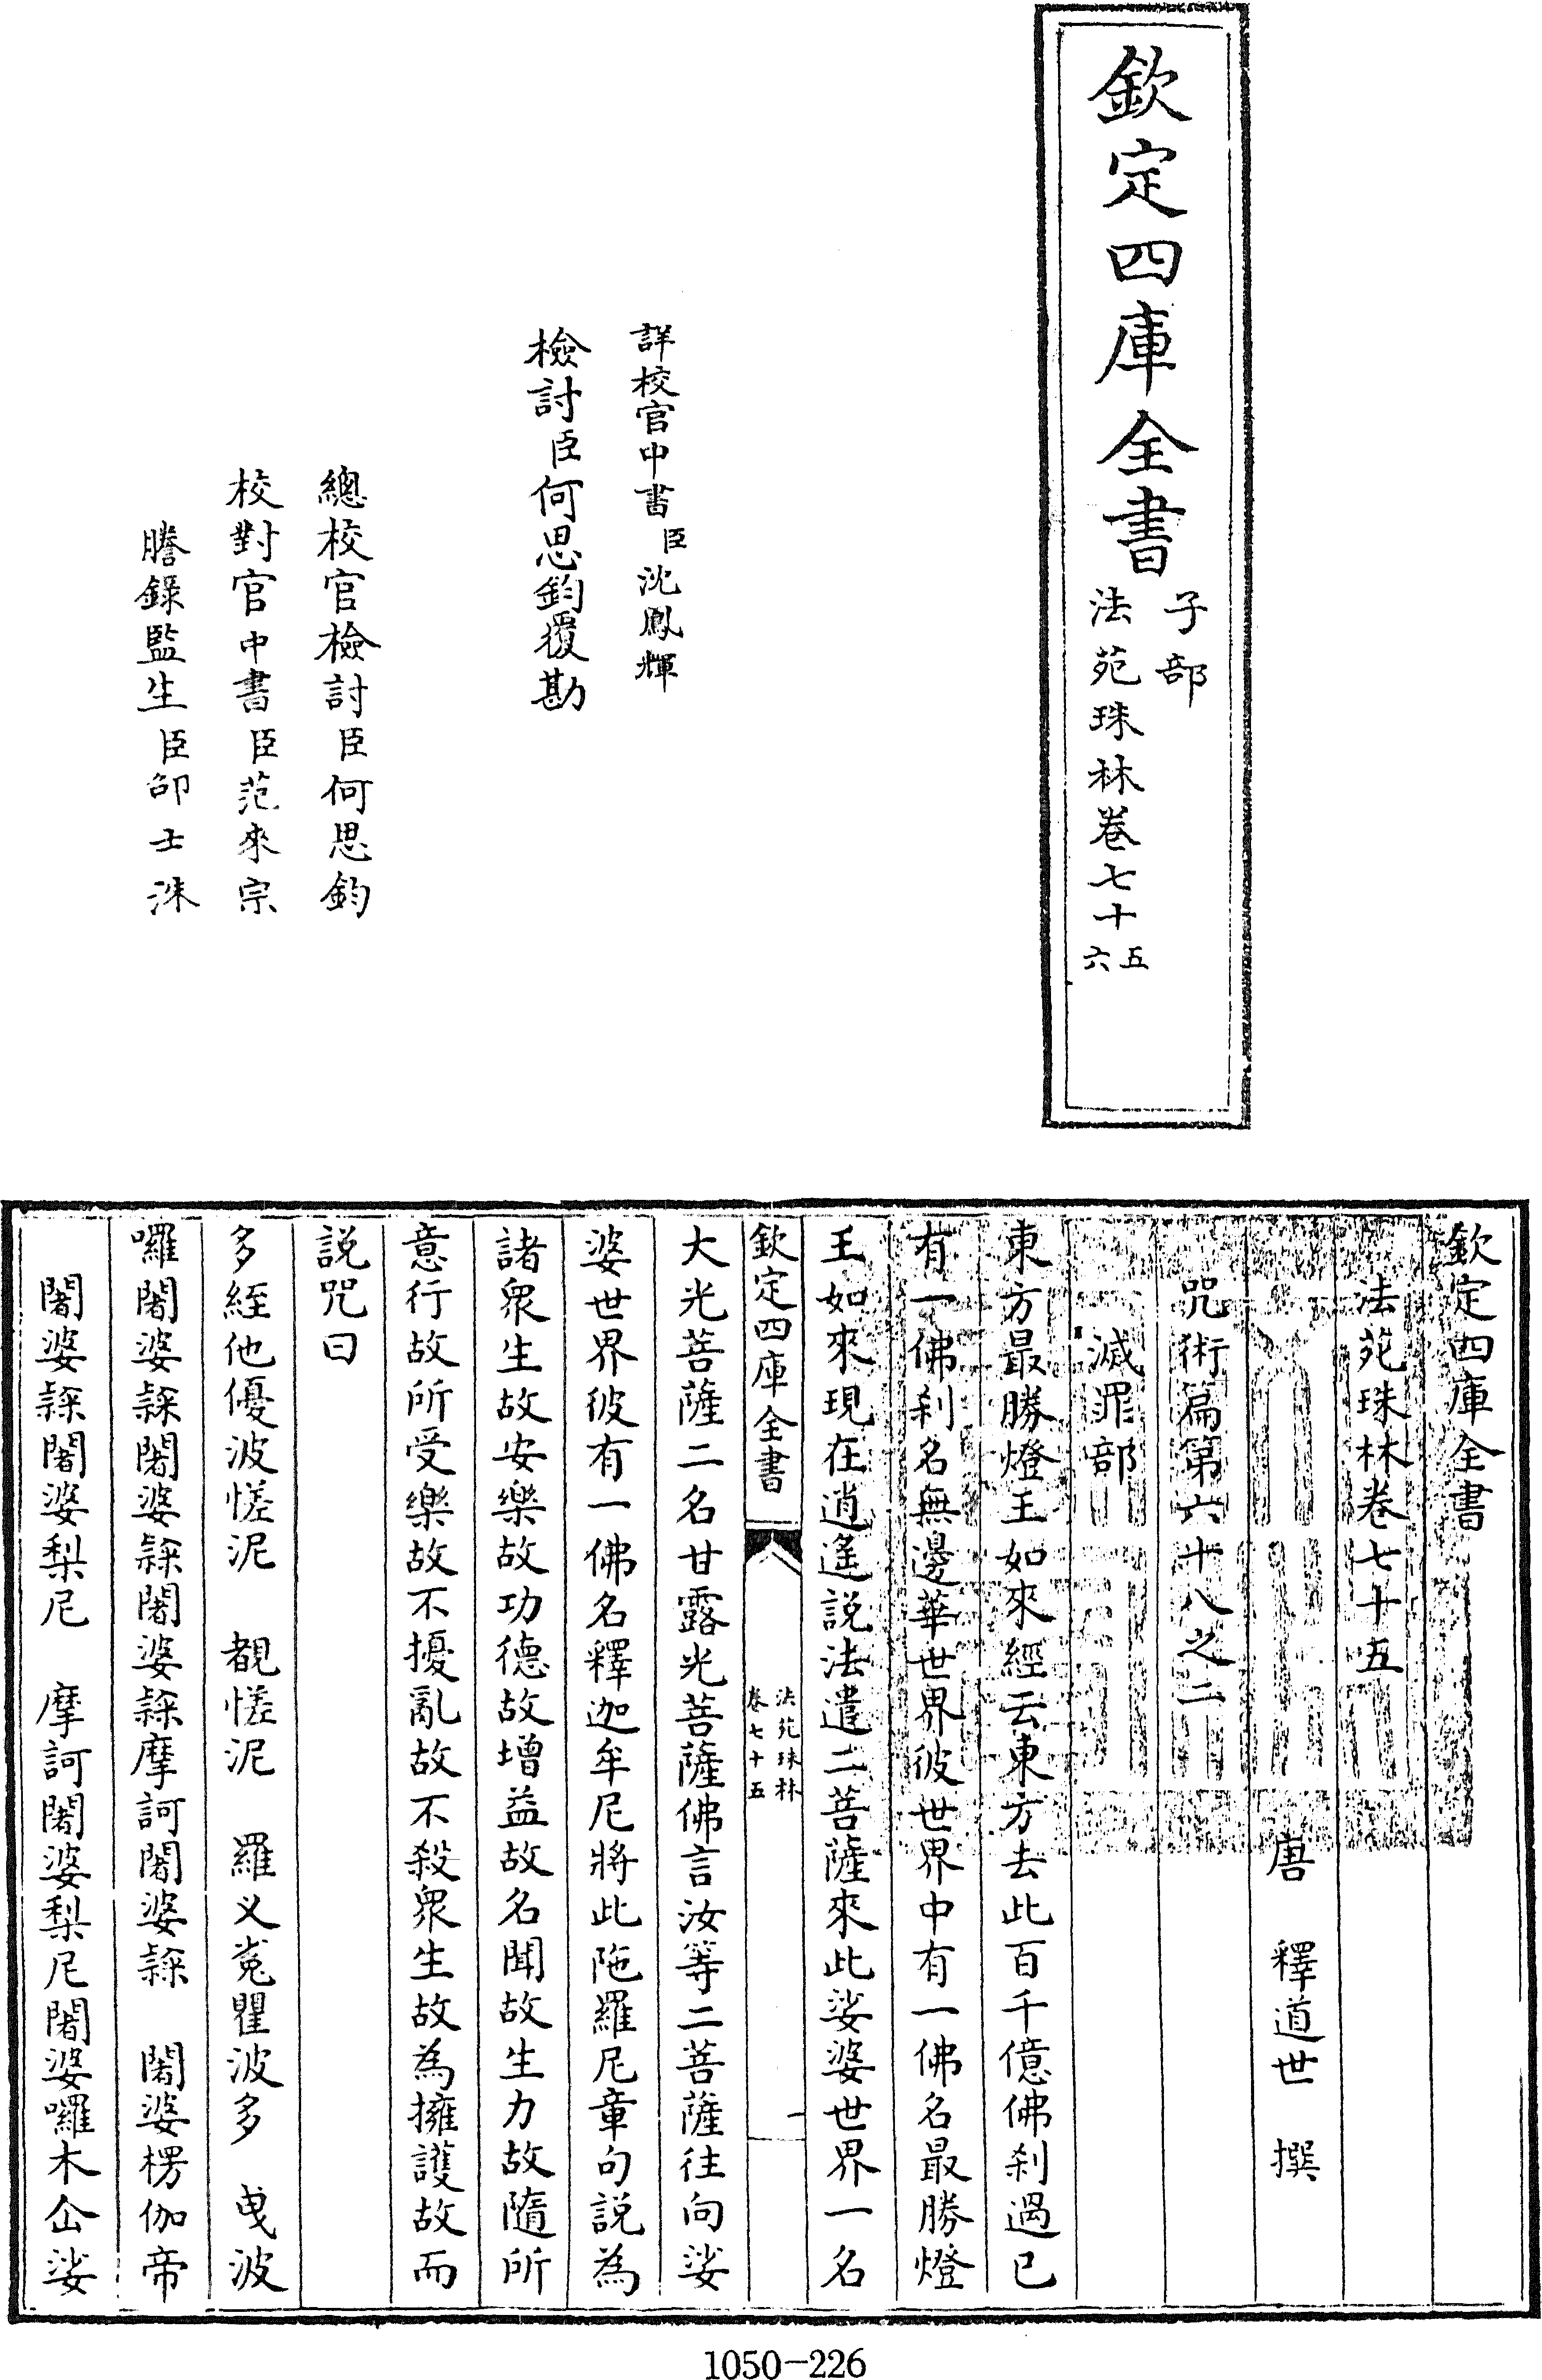 欽定四庫全書
子部
法苑珠林卷七十五六
詳校官中書臣沈鳳輝
檢討臣何思鈞覆勘
總校官檢討臣何思鈞
校對官中書臣范來宗
謄錄監生臣邵士洙
欽定四庫全書
法苑珠林卷七十五
唐 釋道世 撰
咒術篇第六十八之二
滅罪部
東方最勝燈王如來經云東方去此百千億佛刹過已
有一佛刹名無邊華世界彼世界中有一佛名最勝燈
王如來現在逍遙説法遣二菩薩來此娑婆世界一名
欽定四庫全書
法苑珠林
卷七十五
一
大光菩薩二名甘露光菩薩佛言汝等二菩薩往向娑
婆世界彼有一佛名釋迦牟尼將此陁羅尼章句説為
諸衆生故安樂故功德故增益故名聞故生力故隨所
意行故所受樂故不擾亂故不殺衆生故為擁護故而
説咒曰
多絰他優波㗌泥 覩㗌泥 羅义㝹瞿波多 曳波
囉闍婆𨽻闍婆𨽻闍婆𨽻摩訶闍婆𨽻 闍婆楞伽帝
闍婆𨽻闍婆梨尼 摩訶闍婆梨尼闍婆囉木仚娑
1050-226